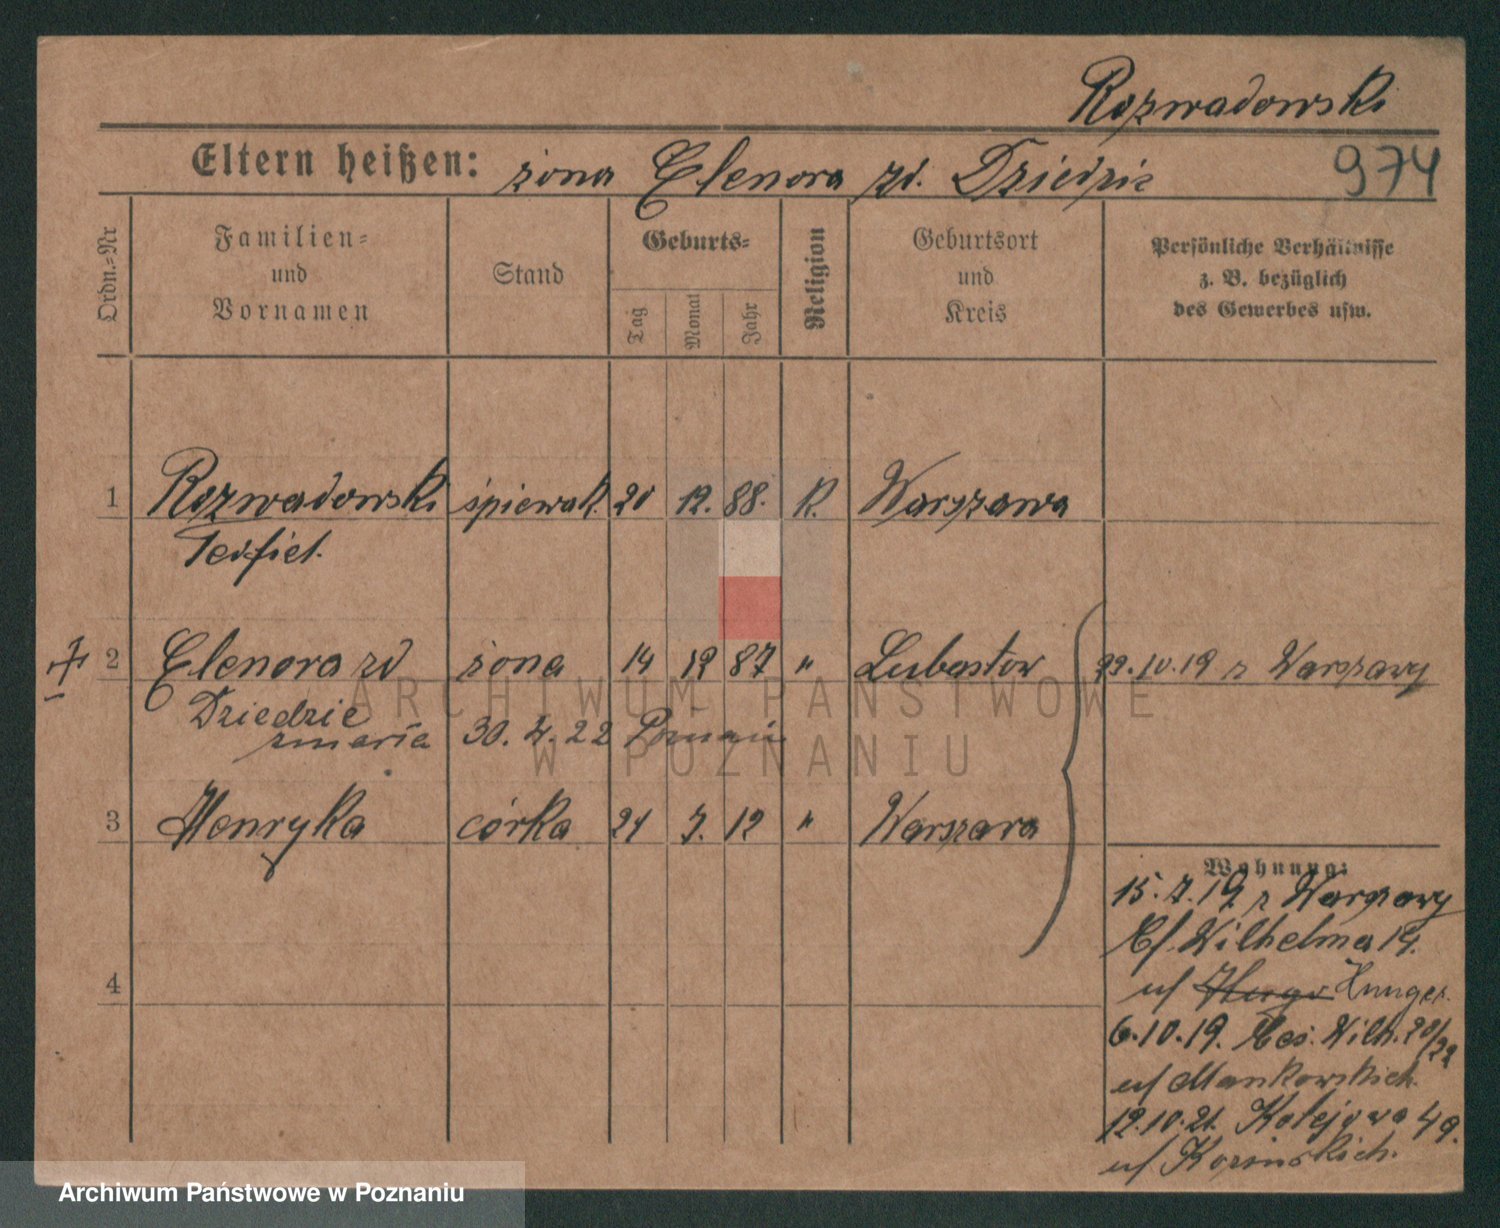 Rozwadowski
Eltern heißen: żona Elenora zd. Dziedzic 974
Ordn.-Nr
Familien-
und
Vornamen
Stand
Geburts-
Tag
Monat
Jahr
Religion
Geburtsort
und
Kreis
Persönliche Verhältnisse
z. B. bezüglich
des Gewerbes usw.
1 Rozwadowski śpiewak. 20 12. 88. R. Warszawa
Teofiel.
2 Elenora zd żona 14 12 87 " Lubastow 22.10.19 z Warszawy
Dziedzic
zmarła 30. 4. 22 Poznań
3 Henryka córka 24 7. 12 " Warszawa
Wohnung:
15. 7. 19. z Warszawy
Wilhelma 14.
u/ Hugo Hunger.
6.10.19. Ces. Wilh. 20/22
u/ Mankowskich.
12.10.21. Kolejowa 49.
u/
4
ARCHIWUM PAŃSTWOWE
W POZNANIU
Archiwum Państwowe w Poznaniu